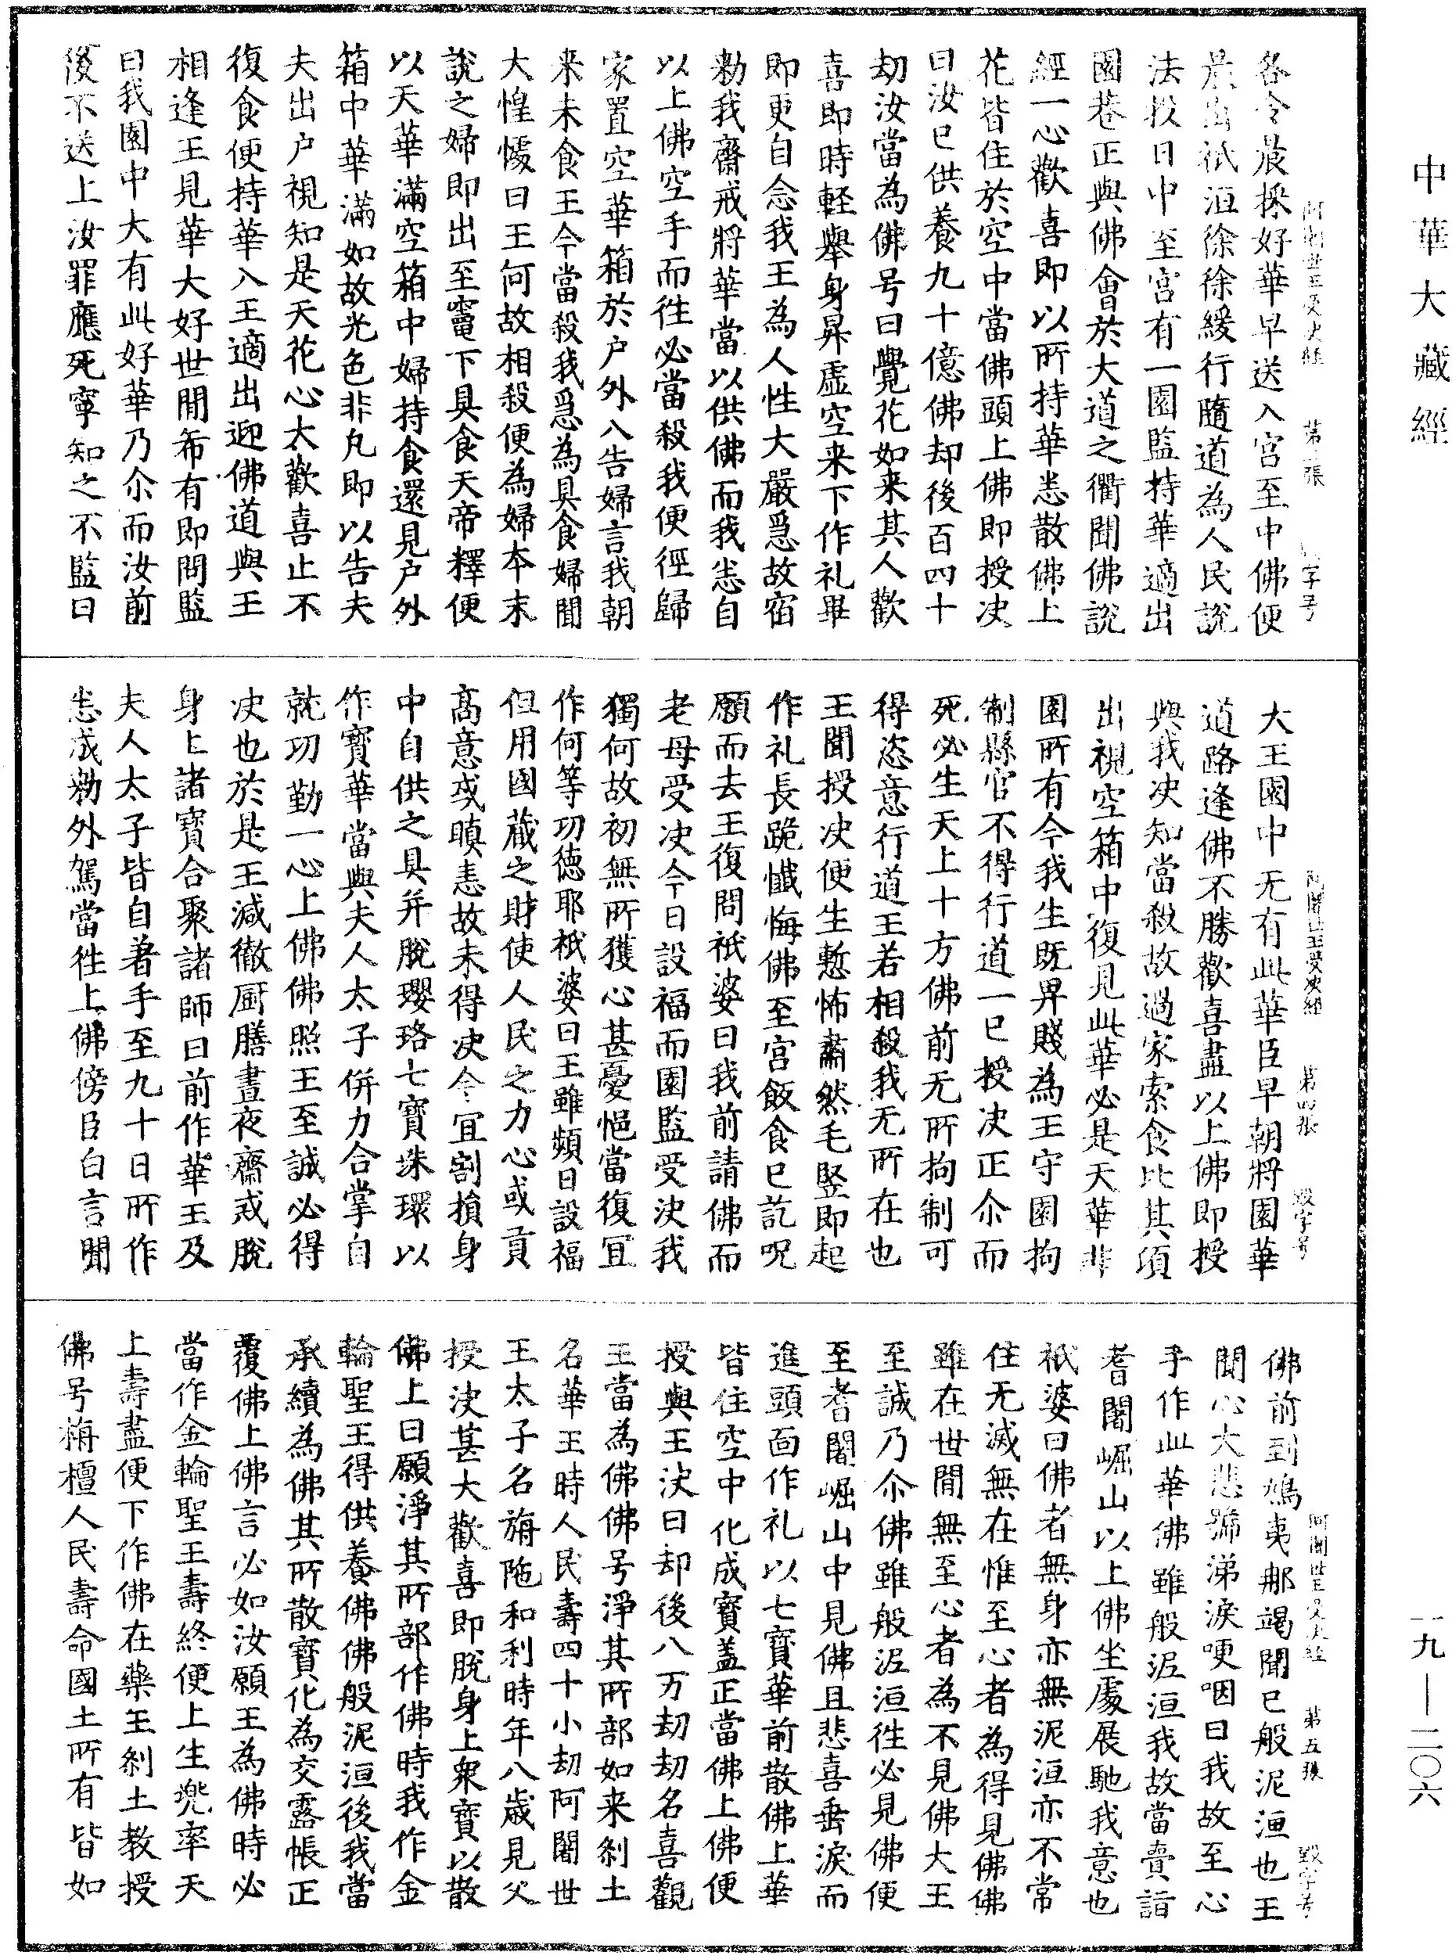 中華大藏經
各令晨採好華早送入宮至中佛便
晨出祇洹徐徐緩行隨道為人民說
法投日中至宮有一園監持華適出
園巷正與佛會於大道之衢聞佛說
經一心歡喜即以所持華悉散佛上
花皆住於空中當佛頭上佛即授决
曰汝已供養九十億佛却後百四十
劫汝當為佛号曰覺花如来其人歡
喜即時輕舉身昇虛空来下作礼畢
即更自念我王為人性大嚴急故宿
勑我齋戒將華當以供佛而我悉自
以上佛空手而徃必當殺我便徑歸
家置空華箱於户外入告婦言我朝
来未食王今當殺我急為具食婦聞
大惶懅曰王何故相殺便為婦本末
說之婦即出至竈下具食天帝釋便
以天華滿空箱中婦持食還見户外
箱中華滿如故光色非凡即以告夫
夫出户視知是天花心大歡喜止不
復食便持華入王適出迎佛道與王
相逢王見華大好世間希有即問監
曰我園中大有此好華乃尒而汝前
後不送上汝罪應死寧知之不監曰
阿闍世王受决經 第四張 毀字号
大王園中无有此華臣早朝將園華
道路逢佛不勝歡喜盡以上佛即授
與我决知當殺故過家索食比其頃
出視空箱中復見此華必是天華非
園所有今我生既畀賤為王守園拘
制縣官不得行道一已授决正尒而
死必生天上十方佛前无所拘制可
得恣意行道王若相殺我无所在也
王聞授决便生慙怖肅然毛竪即起
作礼長跪懺悔佛至宮飯食已訖呪
願而去王復問祇婆曰我前請佛而
老母受决今日設福而園監受决我
獨何故初無所獲心甚憂悒當復冝
作何等功德耶祇婆曰王雖頻日設福
但用國藏之財使人民之力心或貢
高意或瞋恚故未得决今冝割損身
中自供之具并脫瓔珞七寶珠環以
作寶華當與夫人太子併力合掌自
就功勤一心上佛佛照王至誠必得
决也於是王減徹厨膳晝夜齋戒脫
身上諸寶合聚諸師曰前作華王及
夫人太子皆自著手至九十日所作
悉成勑外駕當徃上佛傍臣白言聞
阿闍世王受决經 第五張 毀字号
佛前到鳩夷那竭聞已般泥洹也王
聞心大悲號涕淚哽咽曰我故至心
手作此華佛雖般泥洹我故當賷詣
耆闍崛山以上佛坐處展馳我意也
祇婆曰佛者無身亦無泥洹亦不常
住无滅無在惟至心者為得見佛佛
雖在世間無至心者為不見佛大王
至誠乃尒佛雖般泥洹徃必見佛便
至耆闍崛山中見佛且悲喜垂淚而
進頭面作礼以七寶華前散佛上華
皆住空中化成寶盖正當佛上佛便
授與王决曰却後八万劫劫名喜觀
王當為佛佛号淨其所部如来剎土
名華王時人民壽四十小劫阿闍世
王太子名旃陁和利時年八歲見父
授决甚大歡喜即脫身上衆寶以散
佛上曰願淨其所部作佛時我作金
輪聖王得供養佛佛般泥洹後我當
承續為佛其所散寶化為交露帳正
覆佛上佛言必如汝願王為佛時必
當作金輪聖王壽終便上生兜率天
上壽盡便下作佛在藥王剎土教授
佛号栴檀人民壽命國土所有皆如
一九—二〇六